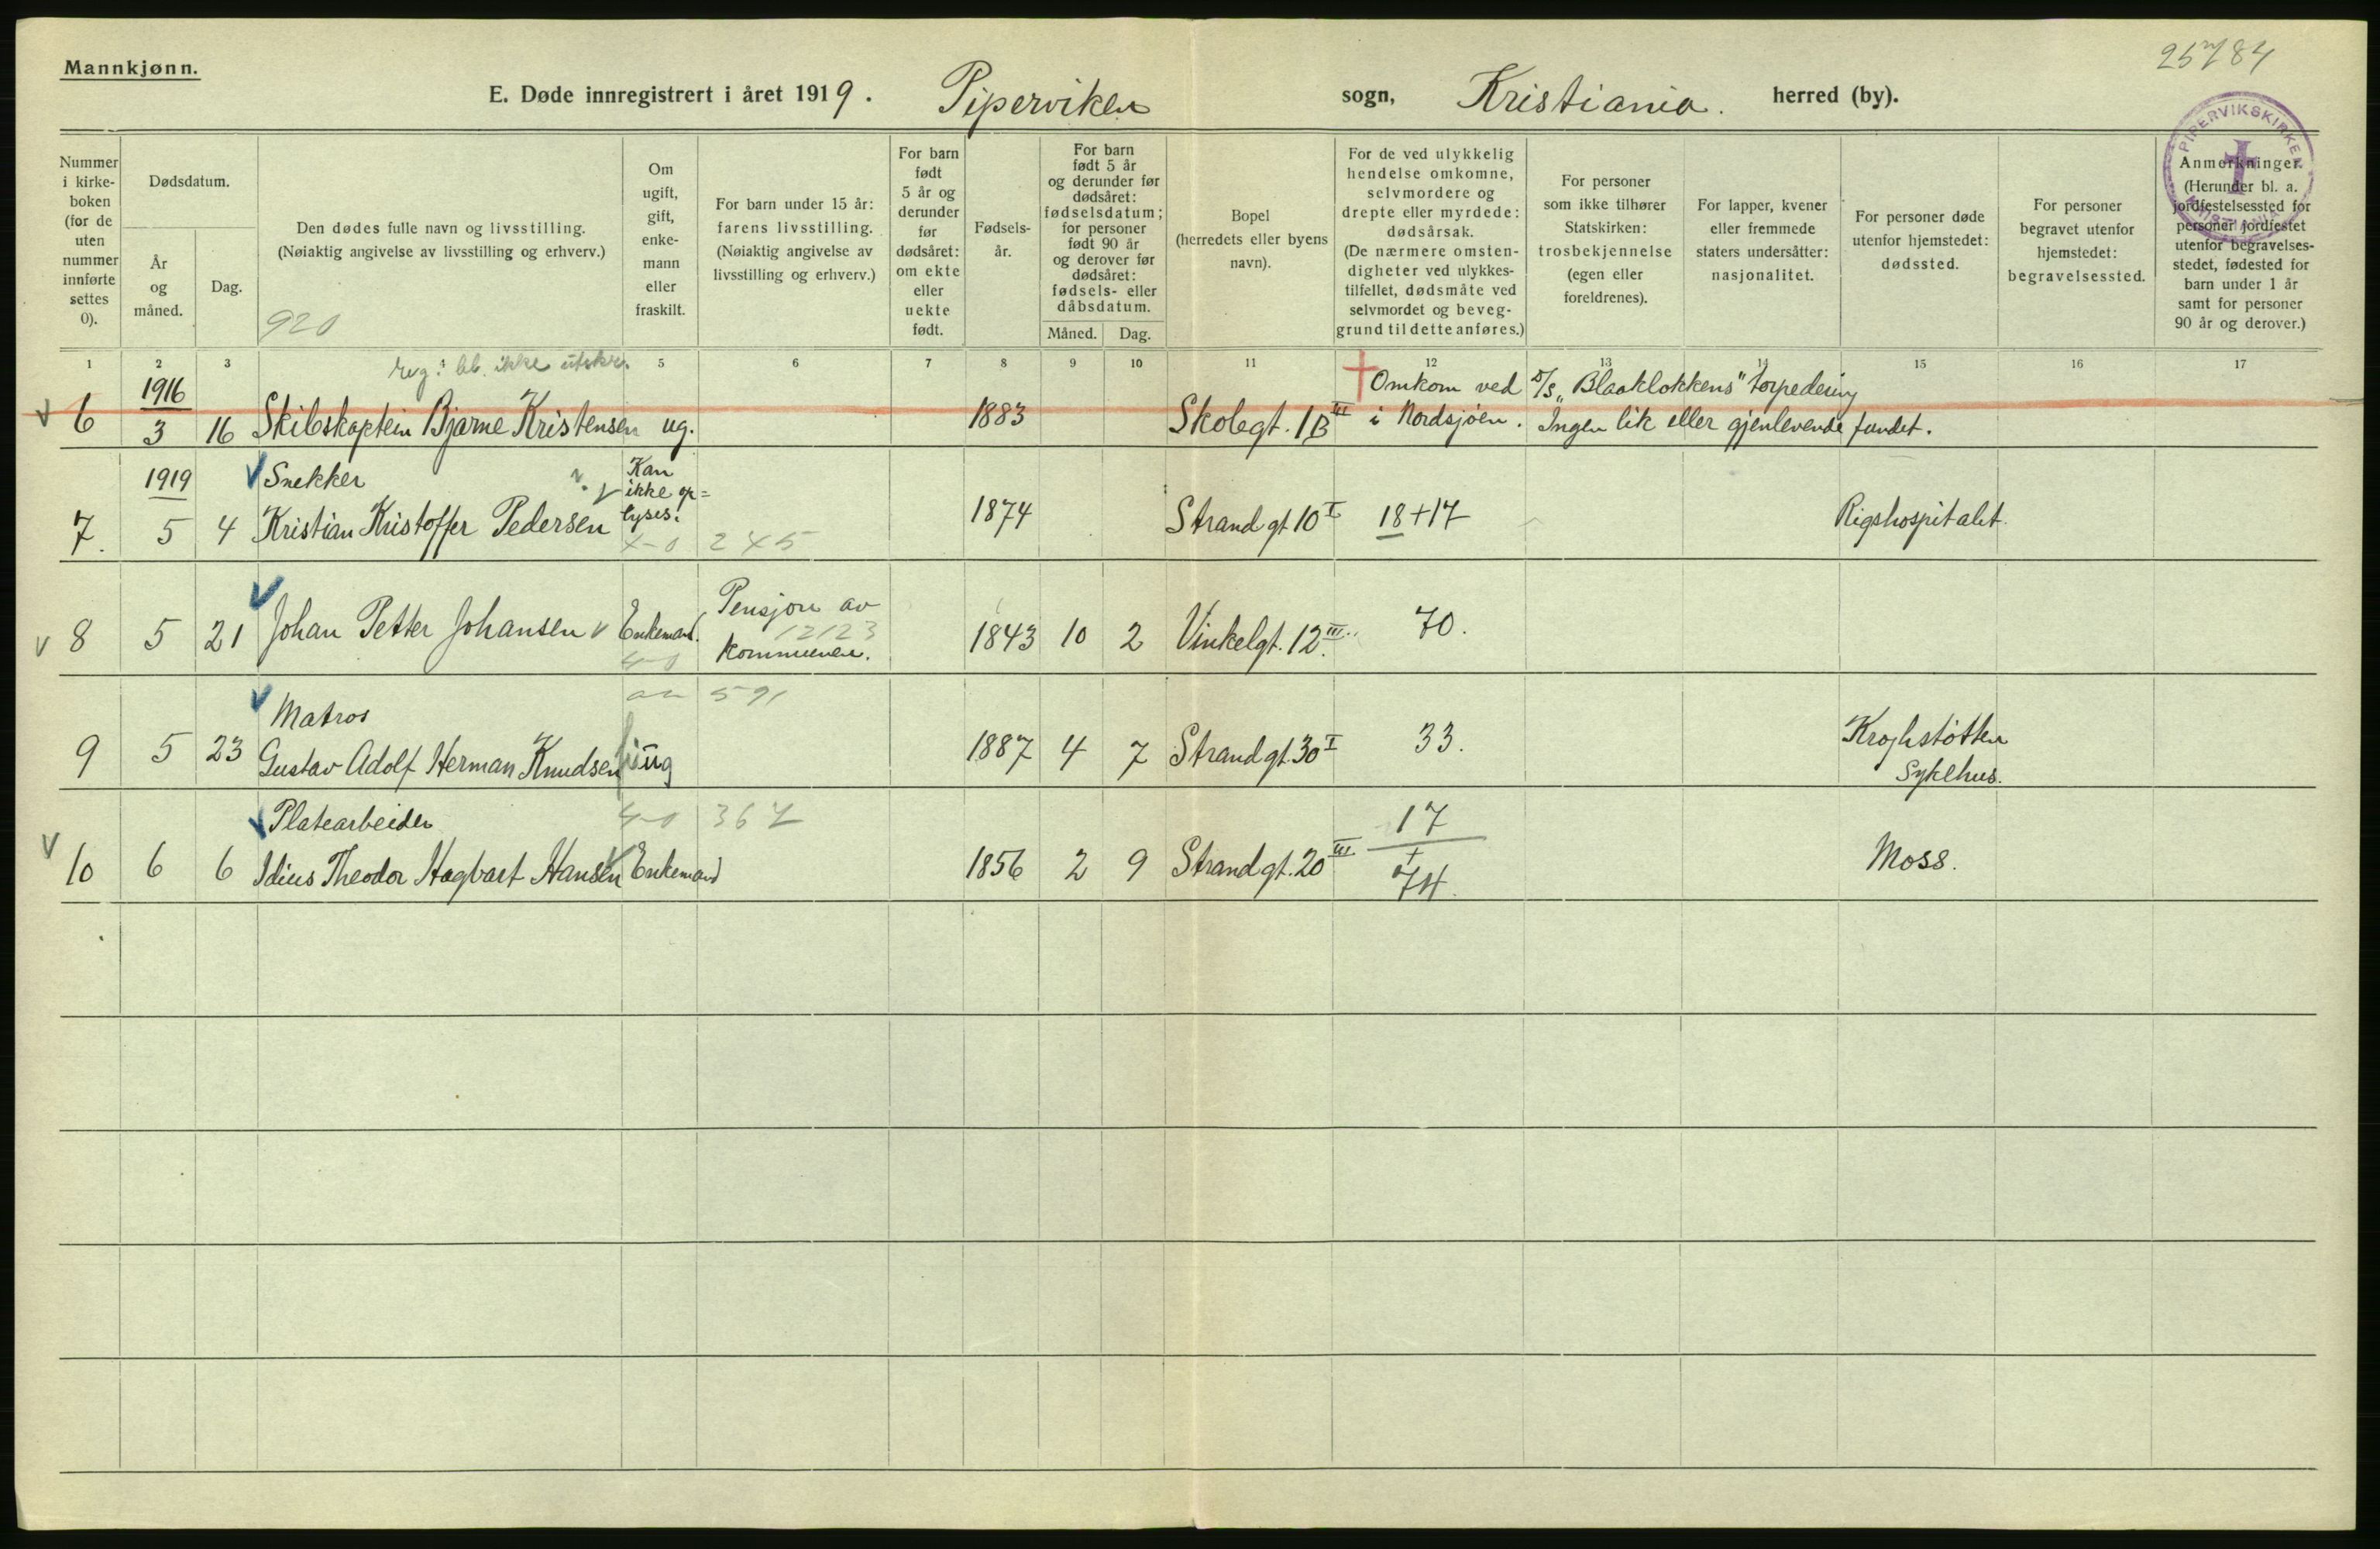 25784
Mannkjønn.
E. Døde innregistrert i året 1919. Piperviken sogn, Kristiania. herred (by).
PIPERVIKSKIRKEN
KRISTIANIA
Nummer i kirke- boken (for de uten nummer innførte settes 0).
Dødsdatum.
År og måned.
Dag.
Den dødes fulle navn og livsstilling.
(Nøiaktig angivelse av livsstilling og erhverv.)
920
Om ugift, gift, enke- mann eller fraskilt.
For barn under 15 år: farens livsstilling.
(Nøiaktig angivelse av livsstilling og erhverv.)
For barn født 5 år og derunder før dødsåret: om ekte eller uekte født.
Fødsels- år.
For barn født 5 år og derunder før dødsåret: fødselsdatum; for personer født 90 år og derover før dødsåret: fødsels- eller dåbsdatum.
Måned. Dag.
Bopel (herredets eller byens navn).
For de ved ulykkelig hendelse omkomne, selvmordere og drepte eller myrdede: dødsårsak. (De nærmere omsten- digheter ved ulykkes- tilfellet, dødsmåte ved selvmordet og beveg- grund til dette anføres.)
For personer som ikke tilhører Statskirken: trosbekjennelse (egen eller foreldrenes).
For lapper, kvener eller fremmede staters undersåtter: nasjonalitet.
For personer døde utenfor hjemstedet: dødssted.
For personer begravet utenfor hjemstedet: begravelsessted.
Anmerkninger. (Herunder bl. a. jordfestelsessted for personer jordfestet utenfor begravelses- stedet, fødested for barn under 1 år samt for personer 90 år og derover.)
1 2 3 5 6 7 8 9 10 11 12 13 14 15 16 17
reg: bl. ikke utskr.
1916 Omkom ved D/S „Blaaklokkens" torpedering
6 3 16 Skibskaptein Bjarne Kristensen ug. 1883 Skolegt. 1B III i Nordsjøen. Ingen lik eller gjenlevende fundet.
1919 Snekker Kan ikke op= lyses!
7. 5 4 Kristian Kristoffer Pedersen 1874 Strandgt 10 I 18+17 Rigshospitalet.
4-0 245
Pensjon av
8 5 21 Johan Petter Johansen Enkemand. kommunen. 1843 10 2 Vinkelgt. 12 III. 70.
12123
4-0
591
Matros
9 5 23 Gustav Adolf Herman Knudsen ug 1887 4 7 Strandgt. 30 I 33. Kroghstøtten Sykehus.
4-0 367
Platearbeider 17
10 6 6 Idius Theodor Hagbart Hansen Enkemand 1856 2 9 Strandgt. 20 III + 74. Moss.